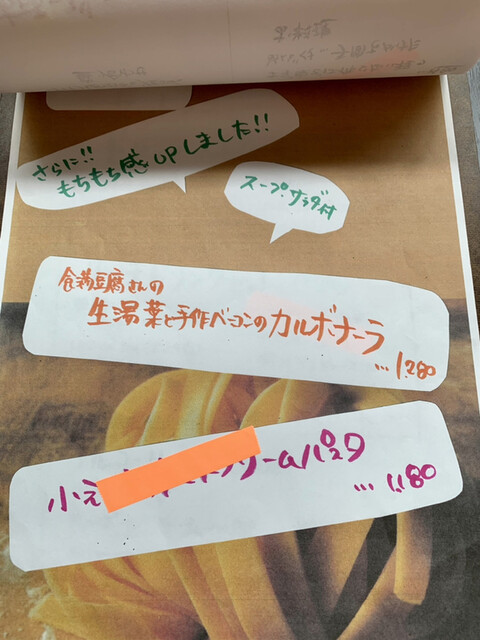 さらに!!
もちもち感UPしました!!
スープ・サラダ付
豆腐さんの
生湯葉と手作ベーコンのカルボナーラ
…1,280
小え
クリームパスタ
…1,180